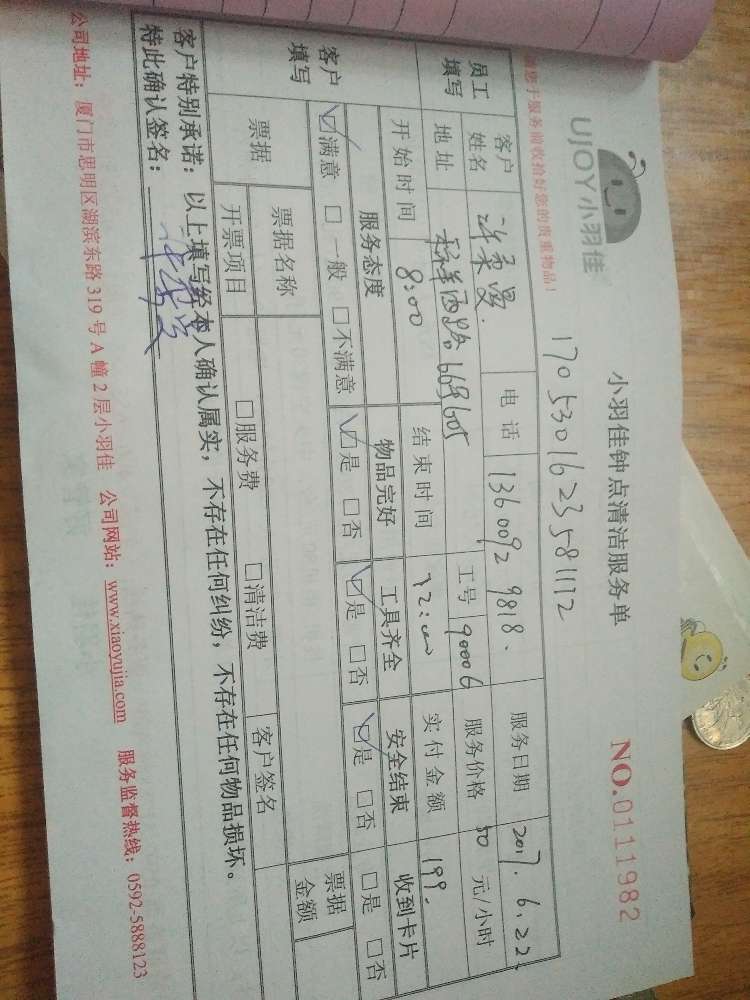 UJOY小羽佳
小羽佳钟点清洁服务单
NO.0111982
您于服务前收拾好您的贵重物品!
1705301623581112
员工填写
客户姓名
电话 1360092 9818.
服务日期 2017. 6. 22
地址 609605
工号 90006
服务价格 50 元/小时
开始时间 8:00
结束时间 12:00
实付金额 199.
客户填写
服务态度 物品完好 工具齐全 安全结束 收到卡片
☑满意 □一般 □不满意 ☑是 □否 ☑是 □否 ☑是 □否 □是 □否
票据
票据名称
票据金额
开票项目 □服务费 □清洁费 客户签名
客户特别承诺:以上填写经本人确认属实,不存在任何纠纷,不存在任何物品损坏。
特此确认签名:
公司地址:厦门市思明区湖滨东路 319 号 A 幢 2 层小羽佳 公司网站:www.xiaoyujia.com 服务监督热线:0592-5888123